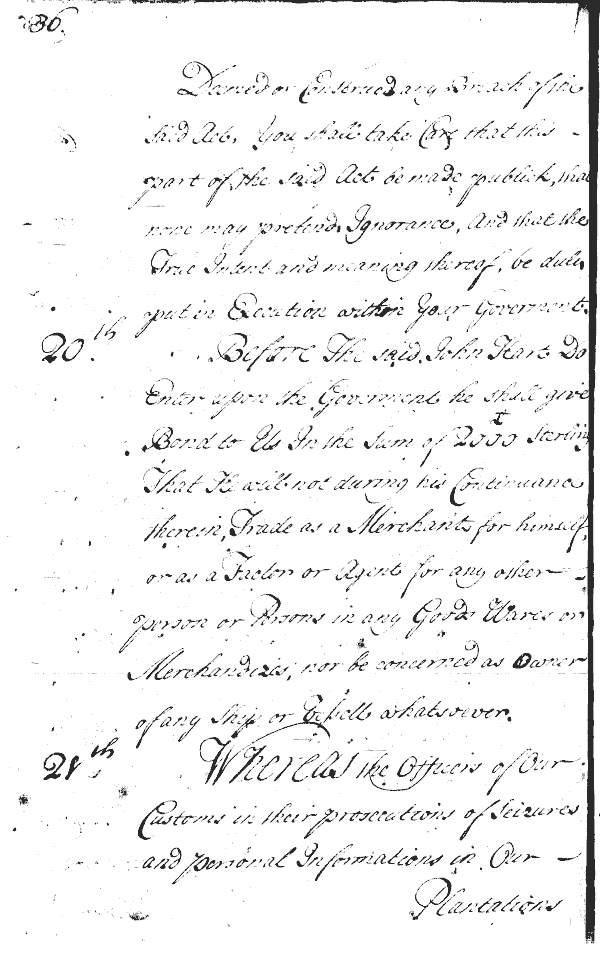 36.
Deemed or Construed any Breach of the
said Act, You shall take Care that this
part of the said Act be made publick, that
none may pretend Ignorance, And that the
True Intent and meaning thereof, be duly
put in Execution within Your Goverment.
20th Before The said John Hart Do
Enter upon the Goverment he shall give
Bond to Us In the Sum of 2000 £ Sterling
That He will not during his Continuance
therein, Trade as a Merchant for himself,
or as a Factor or Agent for any other
person or Persons in any Goods Wares or
Merchandizes, nor be concerned as Owner
of any Ship or Vessell whatsoever.
21th Whereas the Officers of Our
Customs in their prosecutions of Seizures
and personal Informations in Our
Plantations